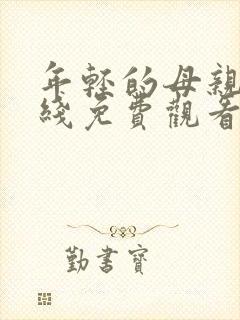 年轻的母親
綫免費觀看
勤書寶